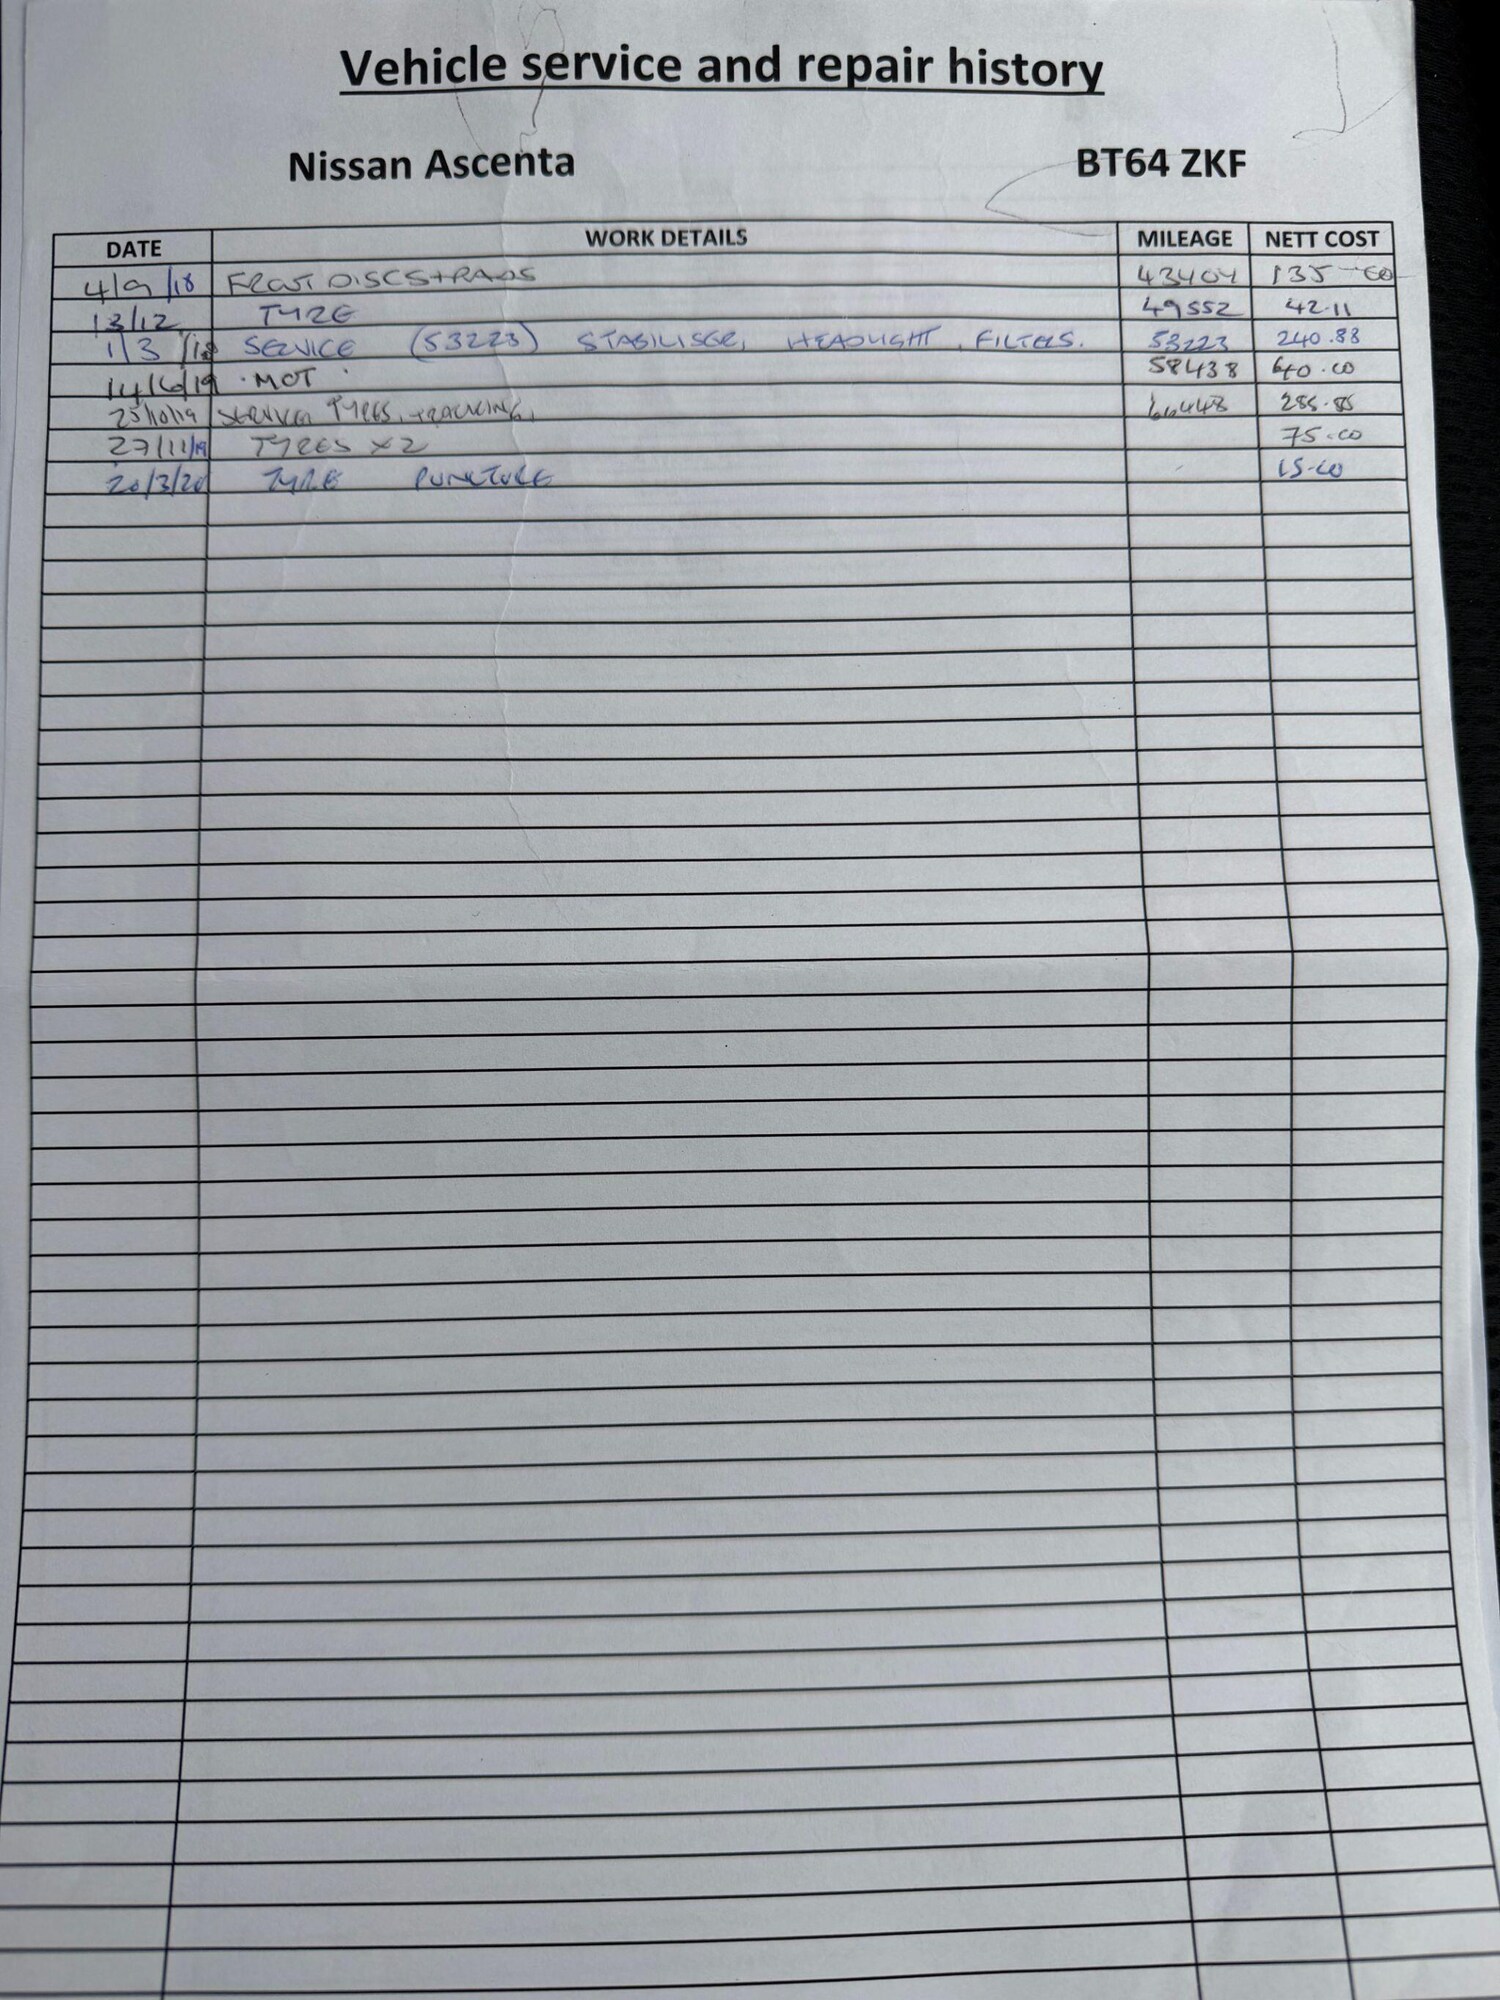 Vehicle service and repair history
Nissan Ascenta BT64 ZKF
DATE WORK DETAILS MILEAGE NETT COST
4/9/18 FRONT DISCS + PADS 43404 135-00
13/12 TYRE 49552 42.11
1/3/18 SERVICE (53223) STABILISER, HEADLIGHT, FILTERS. 53223 240.88
14/6/19 MOT 58438 40.00
25/10/19 SERVICE, TYRES, TRACKING, 66448 285.85
27/11/19 TYRES X2 75.00
20/3/20 TYRE PUNCTURE 15.00